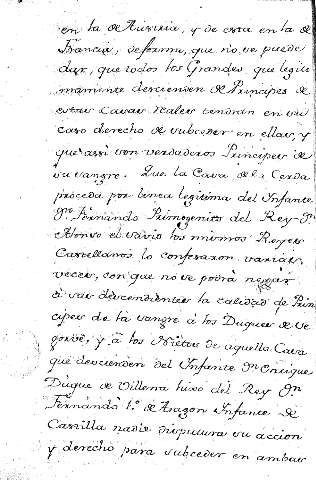 en la de Austria, y de esta en la de
Francia; de forma, que no se puede
dar, que todos los Grandes que legiti
mamente descienden de Principes de
estas Casas Reales tendran en su
caso derecho de subceder en ellas, y
que assi son verdaderos Principes de
su sangre. Que la Casa de la Cerda
proceda por linea legitima del Infante
Dn. Fernando Primogenito del Rey Dn.
Alonso el Savio los mismos Reyes
Castellanos lo confesaron varias
veces, con que no se podrà negar
à sus descendientes la calidad de Prin
cipes de la sangre à los Duques de Se
gorve, y à los Nietos de aquella Casa
que descienden del Infante Dn. Enrique
Duque de Villena hixo del Rey Dn.
Fernando 1.º de Aragon Infante de
Castilla nadie disputara su accion
y derecho para subceder en ambas